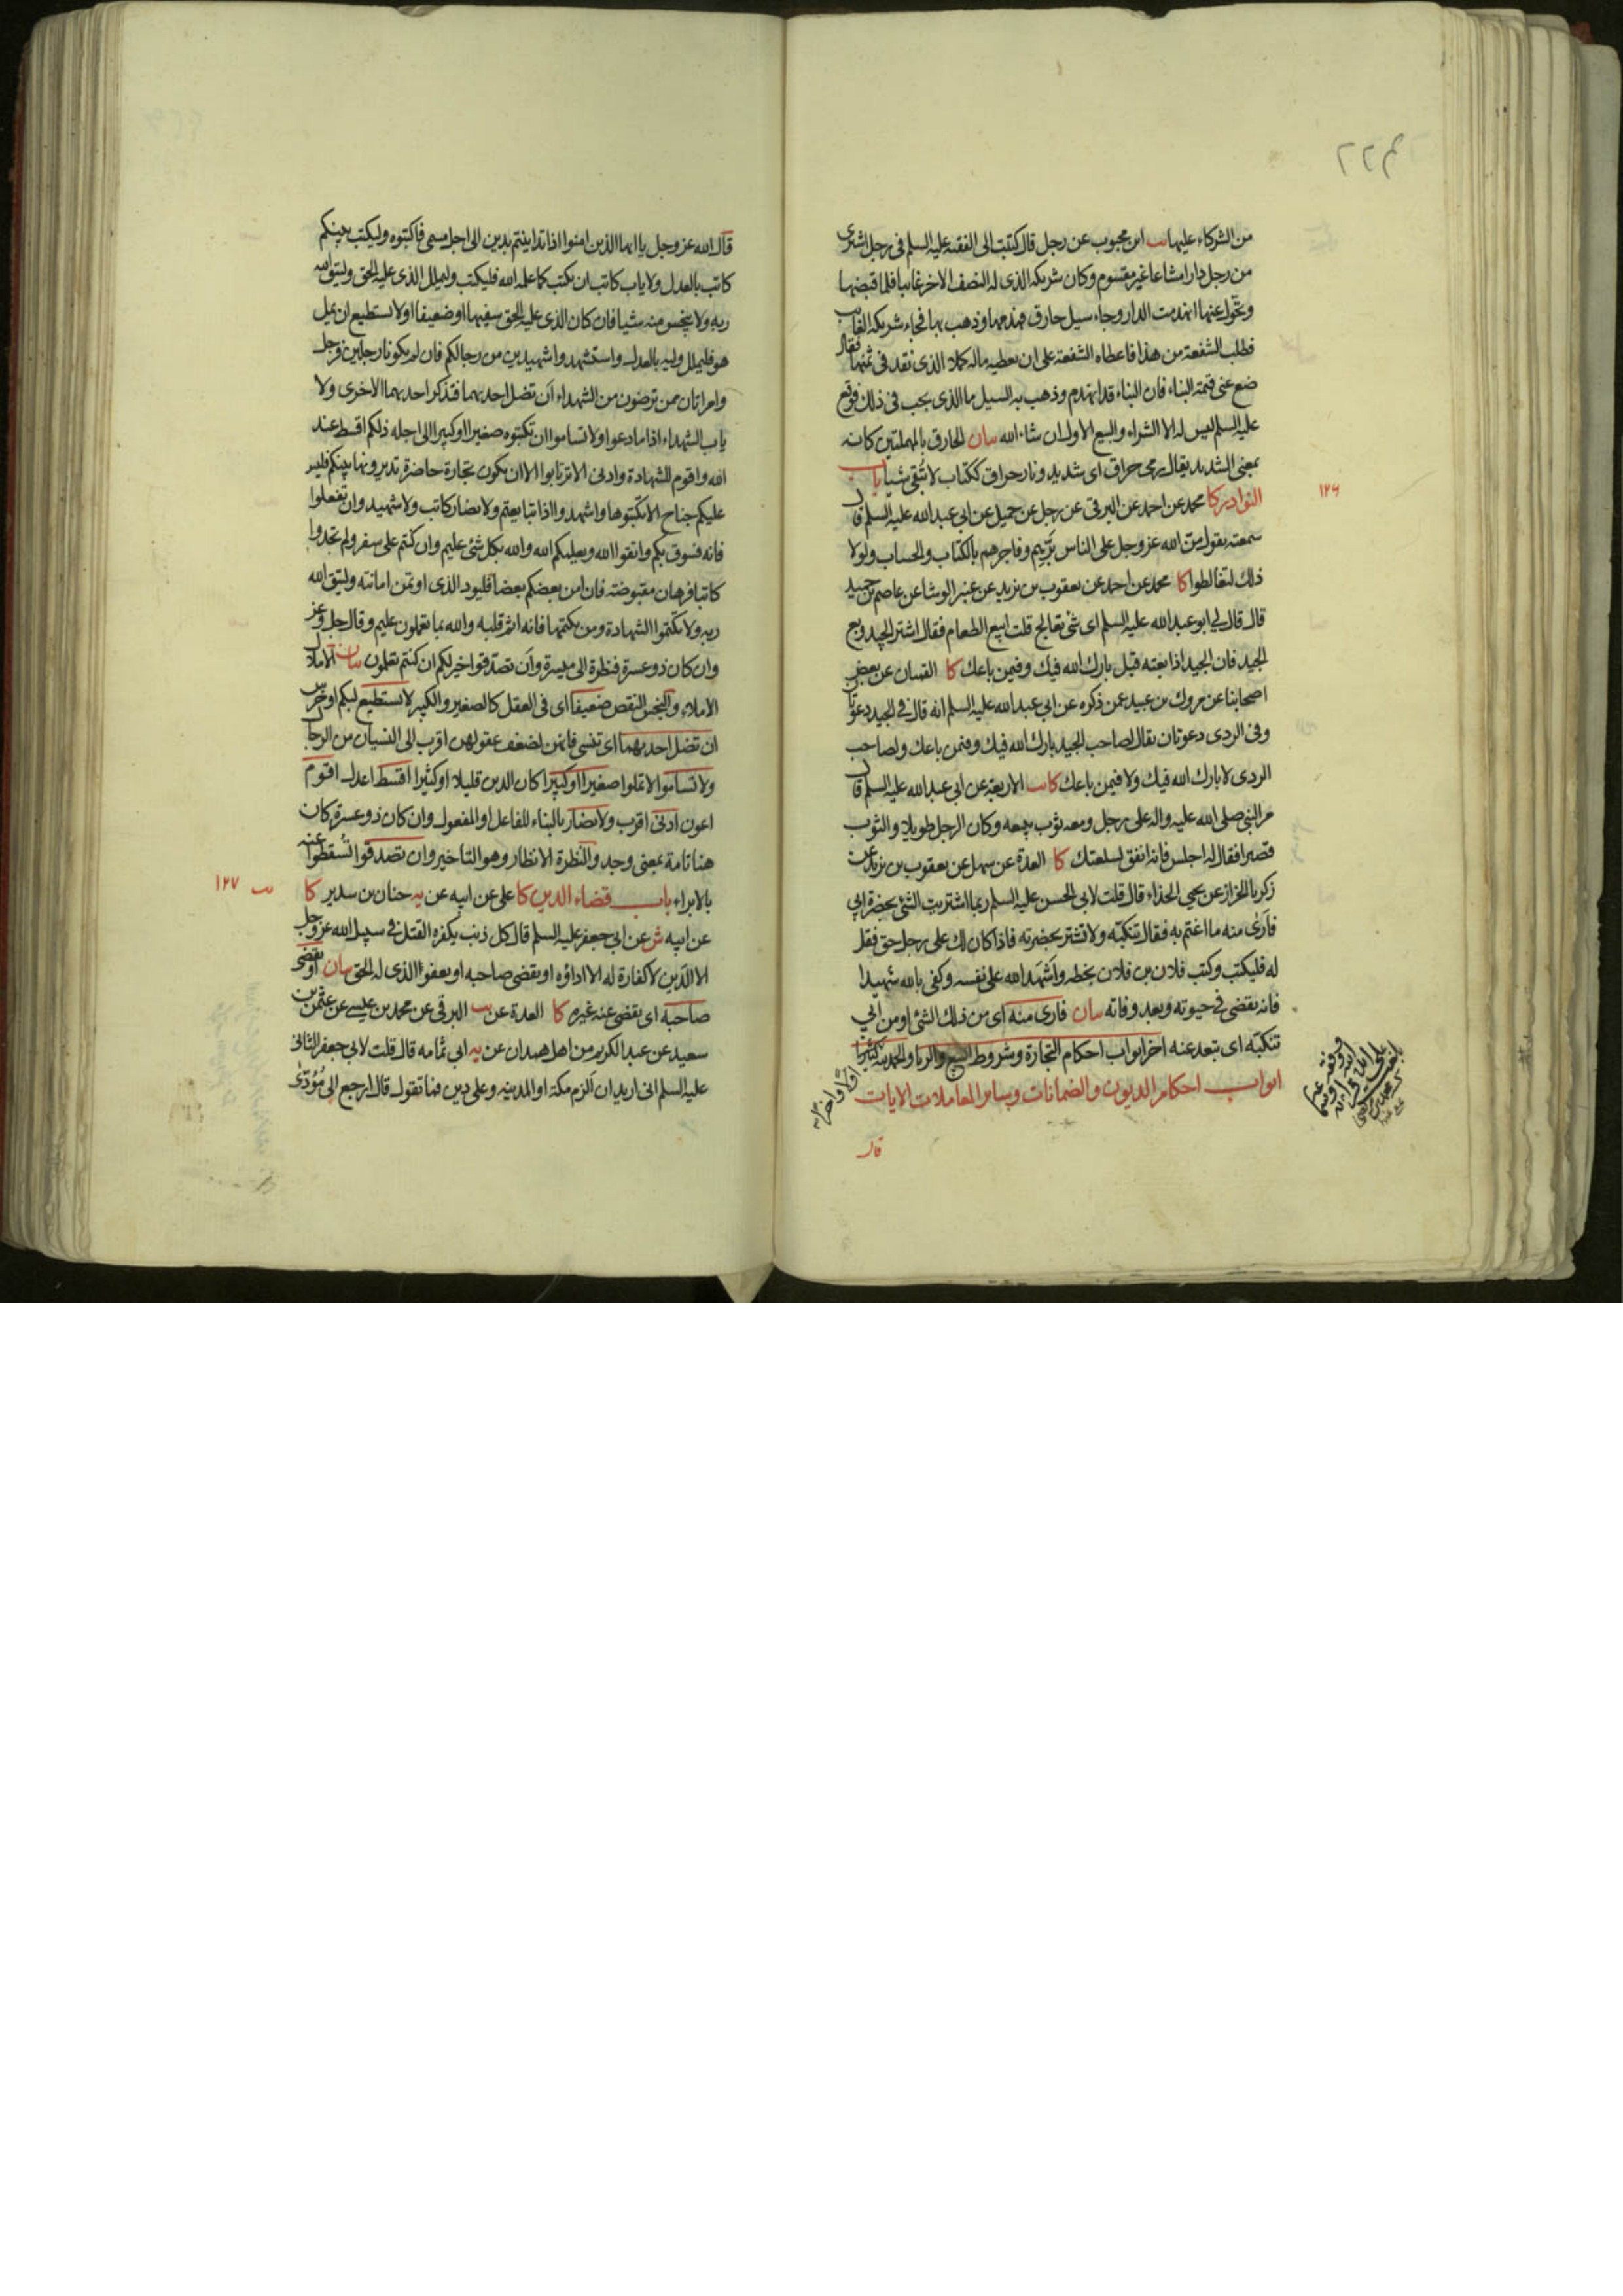 ٢٢٦
من الشركاء عليها يب ابن محبوب عن رجل قال كتبت الى الفقيه عليه السلم في رجل اشترى
من رجل دارا مشاعا غير مقسوم وكان شريكه الذى له النصف الاخر غايبا فلما قبضها
وتحول عنها انهدمت الدار وجاء سيل حارق فهدمها وذهب بها فجاء شريكه الغايب
فطلب الشفعة من هذا فاعطاه الشفعة على ان يعطيه ماله كملا الذى نقد في ثمنها فقال
ضع عنى قيمة البناء فان البناء قد انهدم وذهب به السيل ما الذى يجب في ذلك فوقع
عليه السلم ليس له الا الشراء والبيع الاول ان شاء الله بيان الحارق بالمهملتين كانه
بمعنى الشديد يقال رمى حراق اى شديد ونار حراق ككتاب لا تبقى شيا باب
النوادر كا محمد عن احمد عن البرقى عن رجل عن جميل عن ابى عبد الله عليه السلم قال
١٢٦
سمعته يقول من الله عز وجل على الناس برّهم وفاجرهم بالكتاب والحساب ولولا
ذلك لتغالطوا كا محمد عن احمد عن يعقوب بن يزيد عن غير الوشا عن عاصم بن حميد
قال قال لي ابو عبد الله عليه السلم اى شى تعالج قلت ابيع الطعام فقال اشتر الجيد وبع
الجيد فان الجيد اذا بعته قيل بارك الله فيك وفيمن باعك كا القميان عن بعض
اصحابنا عن مروك بن عبيد عمن ذكره عن ابي عبد الله عليه السلم انه قال في الجيد دعوتا
وفى الردى دعوتان يقال لصاحب الجيد بارك الله فيك وفيمن باعك ولصاحب
الردى لا بارك الله فيك ولا فيمن باعك كا يب الاربعة عن ابى عبد الله عليه السلم قال
مر النبى صلى الله عليه واله على رجل ومعه ثوب يبيعه وكان الرجل طويلا والثوب
قصيرا فقال له اجلس فانه انفق لسلعتك كا العدة عن سهل عن يعقوب بن يزيد عن
زكريا الخزاز عن يحيى الحذاء قال قلت لابي الحسن عليه السلم ربما اشتريت الشئ بحضرة ابي
فارى منه ما اغتم به فقال تنكبه ولا تشتر بحضرته فاذا كان لك على رجل حق فقل
له فليكتب وكتب فلان بن فلان بخطه واشهد الله على نفسه وكفى بالله شهيدا
فانه يقضى في حيوته وبعد وفاته بيان فارى منه اى من ذلك الشئ او من ابي
تنكبه اى تبعد عنه اخر ابواب احكام التجارة وشروط البيع والربا والحمد لله كثيرا
اولا واخرا
ابواب احكام الديون والضمانات وساير المعاملات الايات
قال
قال الله عز وجل يا ايها الذين امنوا اذا تداينتم بدين الى اجل مسمى فاكتبوه وليكتب بينكم
كاتب بالعدل ولا ياب كاتب ان يكتب كما علمه الله فليكتب وليملل الذى عليه الحق وليتق الله
ربه ولا يبخس منه شيا فان كان الذى عليه الحق سفيها او ضعيفا او لا يستطيع ان يمل
هو فليملل وليه بالعدل واستشهدوا شهيدين من رجالكم فان لم يكونا رجلين فرجل
وامراتان ممن ترضون من الشهداء ان تضل احديهما فتذكر احديهما الاخرى ولا
ياب الشهداء اذا ما دعوا ولا تساموا ان تكتبوه صغيرا او كبيرا الى اجله ذلكم اقسط عند
الله واقوم للشهادة وادنى الا ترتابوا الا ان يكون تجارة حاضرة تديرونها بينكم فليس
عليكم جناح الا تكتبوها واشهدوا اذا تبايعتم ولا يضار كاتب ولا شهيد وان تفعلوا
فانه فسوق بكم واتقوا الله ويعلمكم الله والله بكل شئ عليم وان كنتم على سفر ولم تجدوا
كاتبا فرهان مقبوضة فان امن بعضكم بعضا فليود الذى اوتمن امانته وليتق الله
ربه ولا تكتموا الشهادة ومن يكتمها فانه اثم قلبه والله بما تعملون عليم وقال جل وعز
وان كان ذو عسرة فنظرة الى ميسرة وان تصدقوا خير لكم ان كنتم تعلمون بيان الاملال
الاملاء والبخس النقص ضعيفا اى فى العقل كالصغير والكبير لا يستطيع لبكم او خرس
ان تضل احديهما اى تنسى فانهن لضعف عقولهن اقرب الى النسيان من الرجال
ولا تساموا لا تملوا صغيرا او كبيرا كان الدين قليلا او كثيرا اقسط اعدل اقوم
اعون ادنى اقرب ولا يضار بالبناء للفاعل او المفعول وان كان ذو عسرة كان
هنا تامة بمعنى وجد والنظرة الانظار وهو التاخير وان تصدقوا تسقطوا عنه
بالابراء باب قضاء الدين كا على عن ابيه عن يه حنان بن سدير كا
يب ١٢٧
عن ابيه ش عن ابي جعفر عليه السلم قال كل ذنب يكفره القتل في سبيل الله عز وجل
الا الدين لا كفارة له الا اداؤه او يقضى صاحبه او يعفوا الذى له الحق بيان او يقضى
صاحبه اى يقضى عنه غيره كا العدة عن يب البرقى عن محمد بن عيسى عن عثمن بن
سعيد عن عبد الكريم من اهل همدان عن يه ابى ثمامه قال قلت لابي جعفر الثانى
عليه السلم انى اريد ان الزم مكة او المدينه وعلى دين فما تقول قال ارجع الى مؤدى